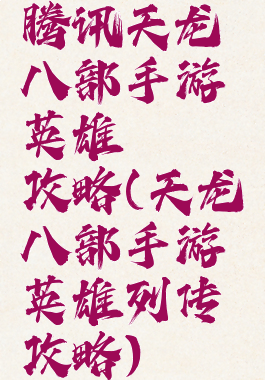 腾讯天龙
八部手游
英雄
攻略(天龙
八部手游
英雄列传
攻略)